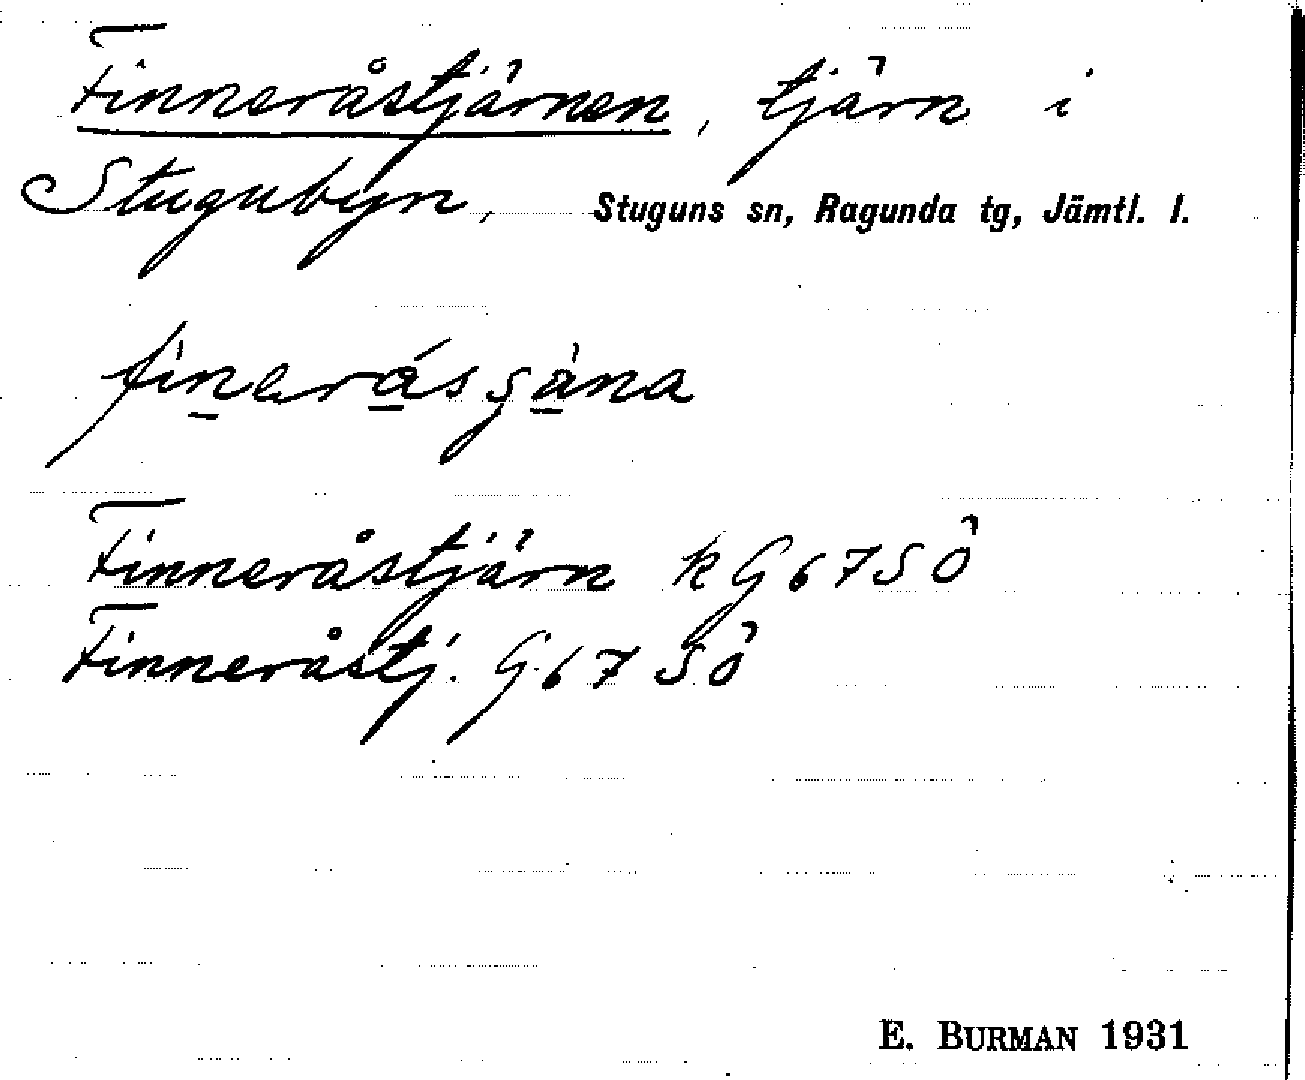 Finneråstjärnen, tjärn i
Stugubyn, Stuguns sn, Ragunda tg, Jämtl. l.
fìnerásʂàna
Finneråstjärn k G 67 SÖ
Finneråstj. G 67 SÖ
E. BURMAN 1931